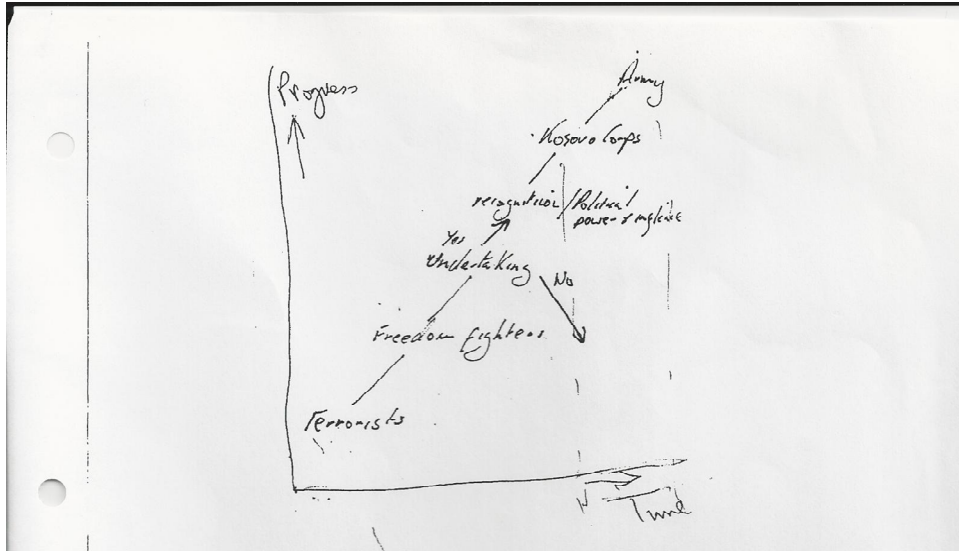 Progress
Army
Kosovo Corps
recognition / Political
power &
Yes
Undertaking
No
Freedom fighters
Terrorists
Time